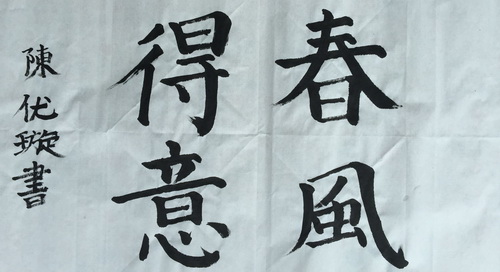 春風
得意
陳伏璇書